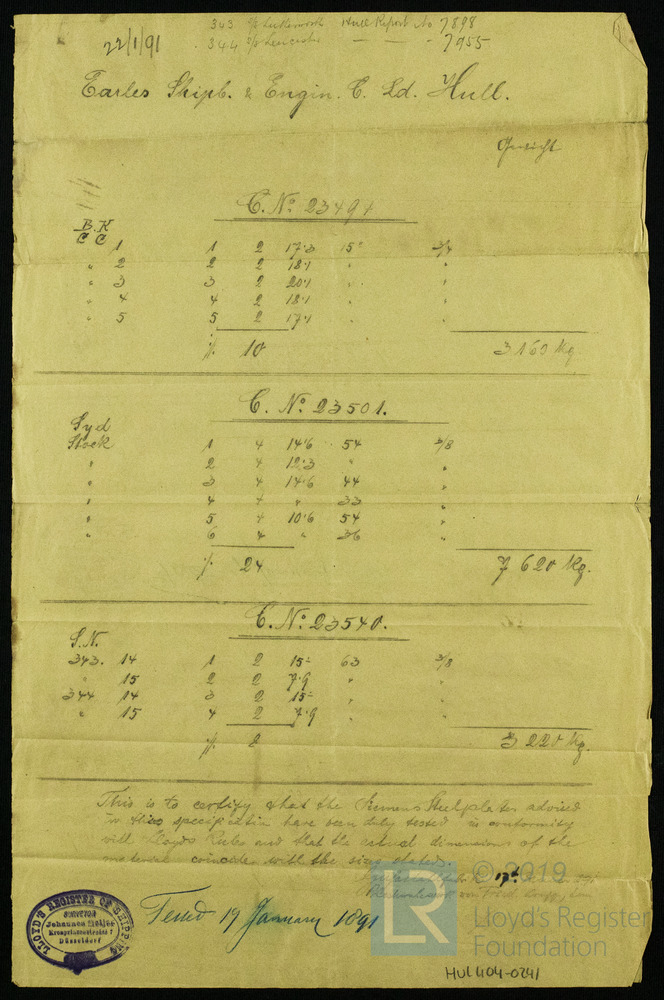 343 S/S Lutterworth Hull Report No 7898
22/1/91 344 S/S Leicester — — - 7955
Earles Shipb. & Engin. C. Ld. Hull.
Gewicht
C. No. 23494
B.K
C C 1 1 2 17·3 15= 3/4
" 2 2 2 18·1 " "
" 3 3 2 20·1 " "
" 4 4 2 18·1 " "
" 5 5 2 17·1 " "
%. 10 3 160 kg
C. No. 23501.
Syd
Stock 1 4 14·6 54 3/8
" 2 4 12·3 " "
" 3 4 14·6 44 "
" 4 4 " 33 "
" 5 4 10·6 54 "
" 6 4 " 36 "
%. 24 7 620 kg.
C. No. 23540.
S.N.
343. 14 1 2 15= 63 3/8
" 15 2 2 7·9 " "
344 14 3 2 15= " "
" 15 4 2 7·9 " "
%. 8 3 220 kg.
This is to certify that the Siemens Steelplates advised
in this specification have been duly tested in conformity
with Lloyds Rules and that the actual dimensions of the
material coincides with the sizes stated.
17th
LLOYD'S REGISTER OF SHIPPING
SURVEYOR
Johannes Meijer
Kronprinzenstrasse
Düsseldorf
19 January 1891
© 2019
LR
Lloyd's Register
Foundation
HUL404-0241